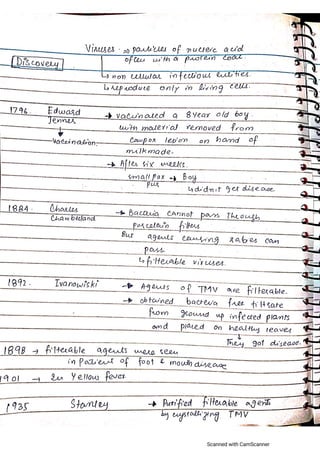 Viruses :⇒ particles of nucleic acid
often with a protein coat
Discovery
↳ non cellular infectious entities.
↳ reproduce only in living cells.
1796 Edward Jenner → vaccinated a 8 year old boy
with material removed from
vaccination. cowpox lesion on hand of
milkmade.
→ After six weeks
small pox → Boy
pus ↳ didn't get disease
1884 Charles Chamberland → Bacteria cannot pass through
porcelain filters
But agents causing rabies can
pass
↳ filterable viruses
1892. Ivanowiski → Agents of TMV are filterable.
→ obtained bacteria free filtrate
from ground up infected plants
and placed on healthy leaves
They got disease.
1898 → filterable agents were seen
in patient of foot & mouth disease
1901 → In Yellow fever
1935 Stanley → Purified filterable agents
by crystallizing TMV
Scanned with CamScanner